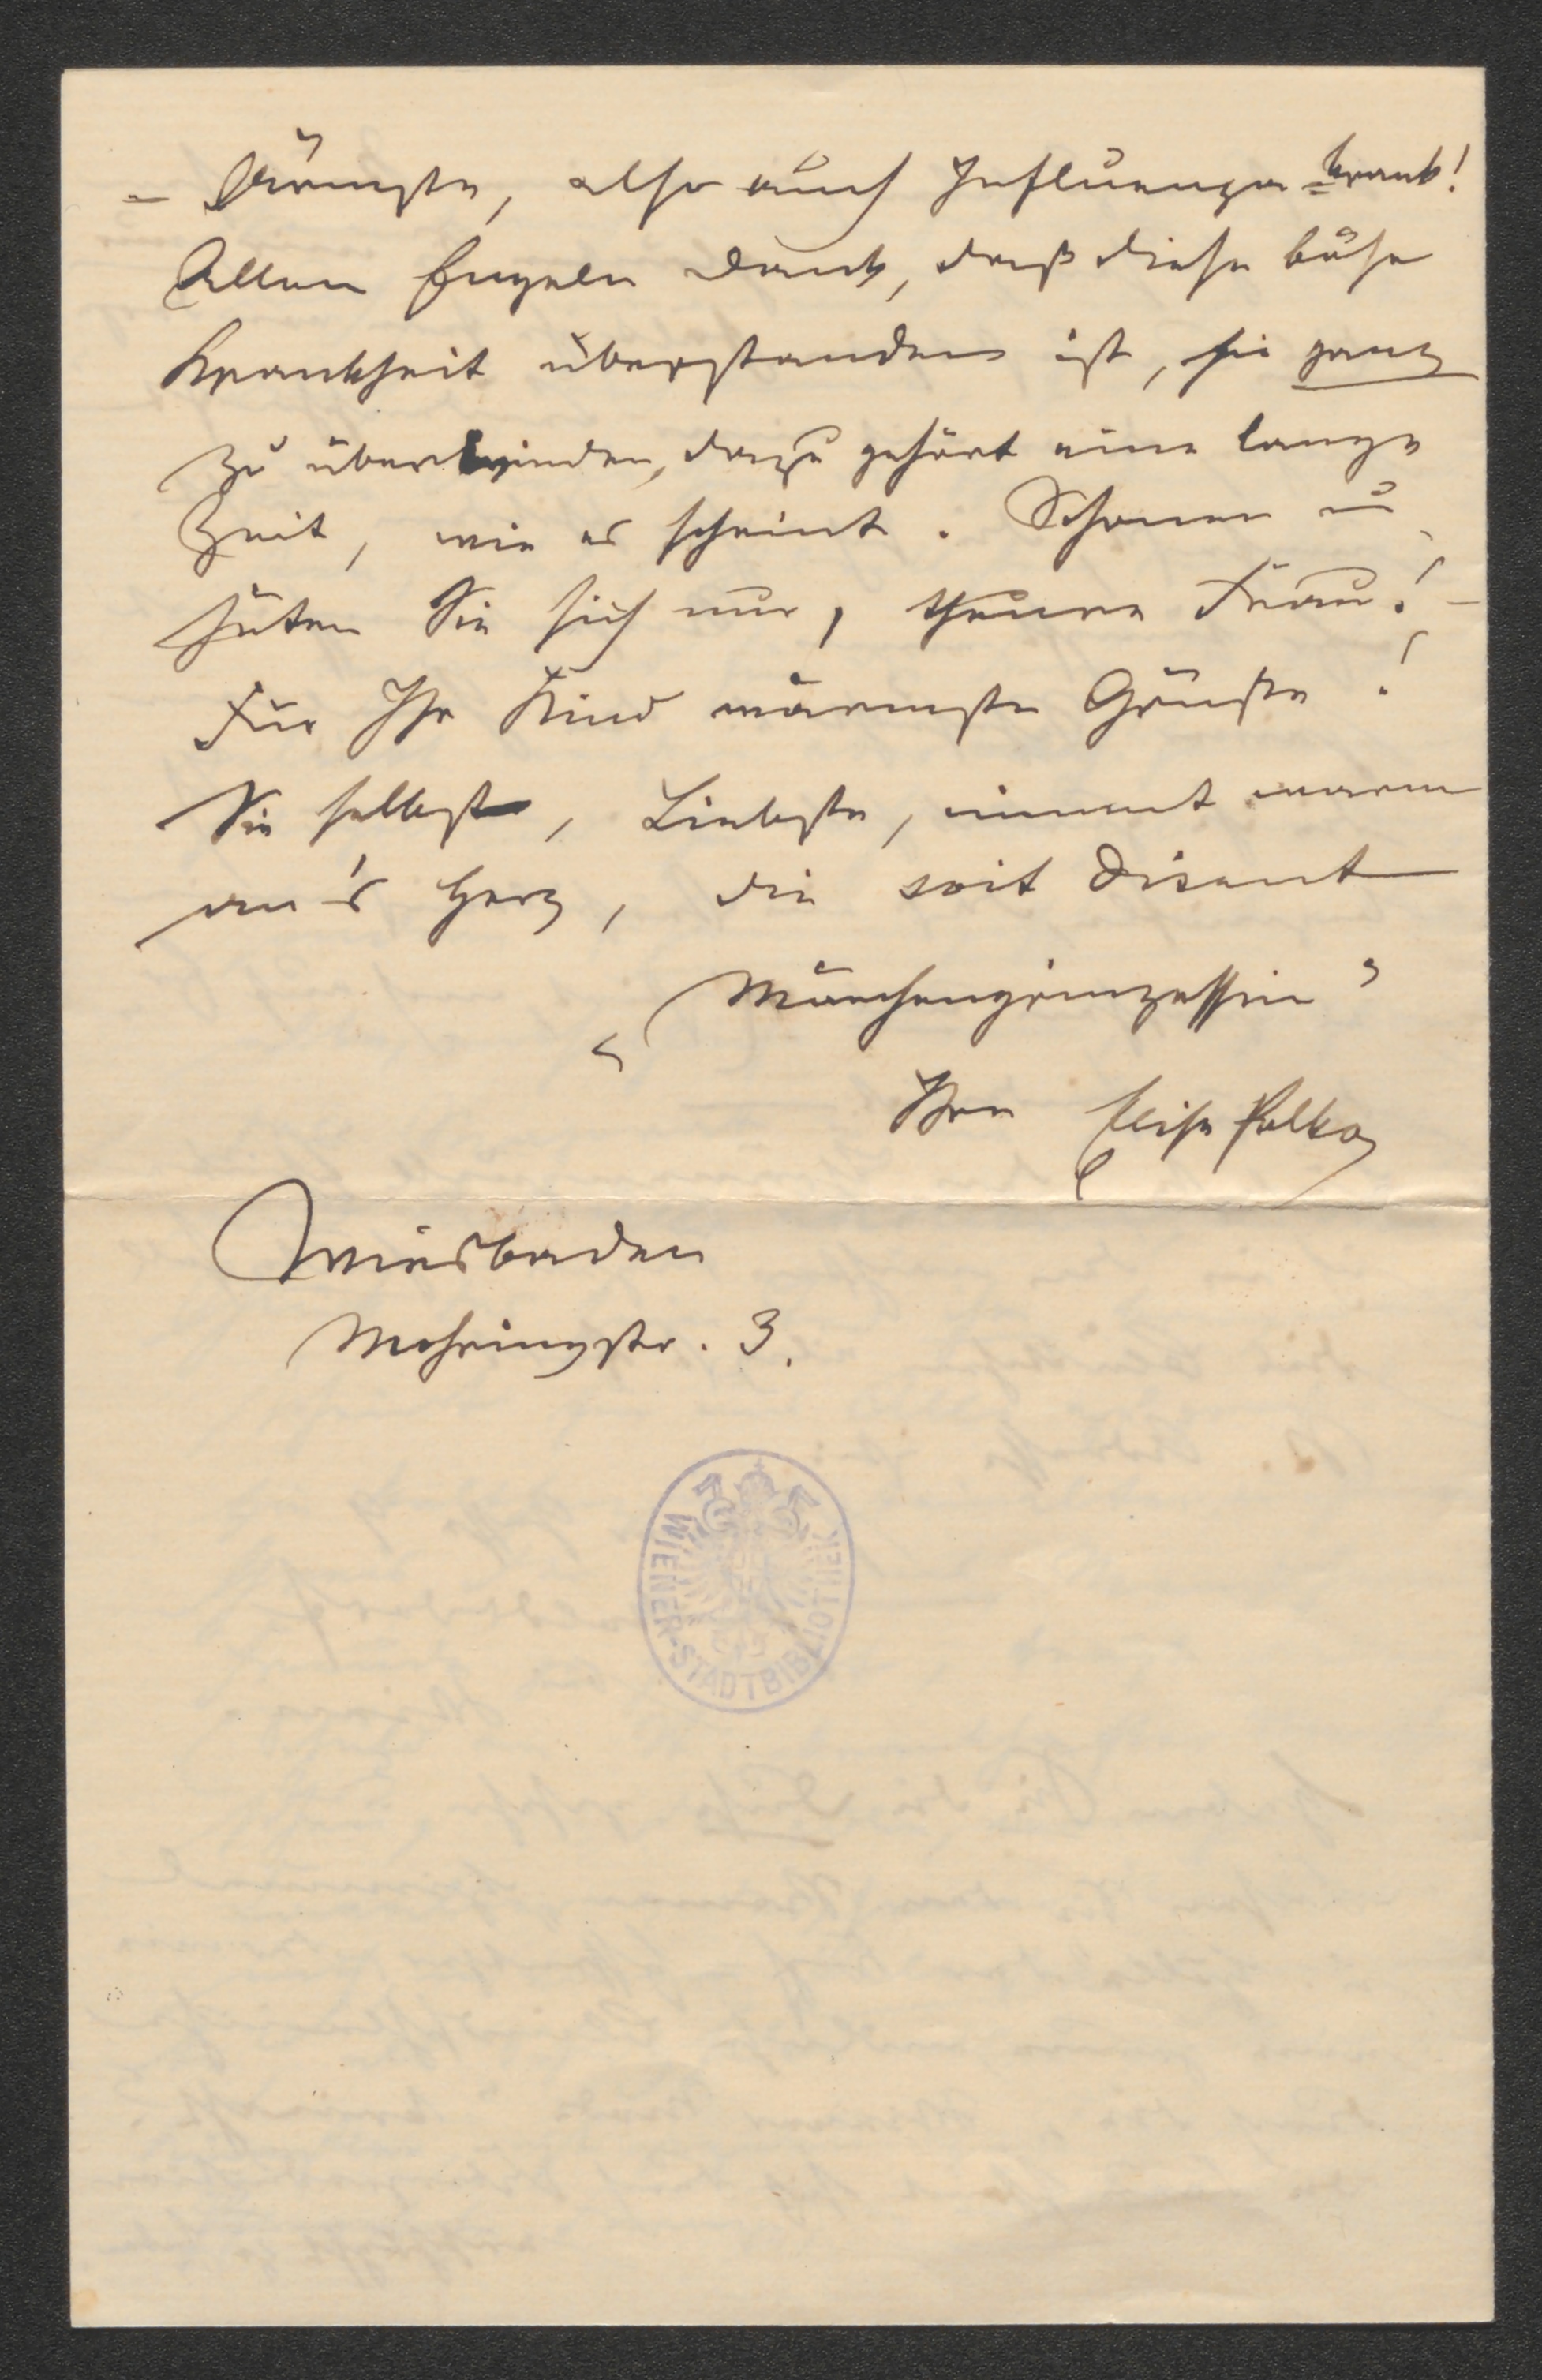 – Ärmste, also auch Influenza-krank!
Allen Engeln Dank, daß diese böse
Krankheit überstanden ist, sie ganz
zu überwinden, dazu gehört eine lange
Zeit, wie es scheint. Schonen u
hüten Sie sich nur, theure Frau! –
Für Ihr Kind wärmste Grüße!
Sie selbst, Liebste, nimmt warm
an's Herz, die soit disant
„Märchenprinzessin"
Ihre Elise Polko
Wiesbaden
Mohringstr. 3.
WIENER-STADTBIBLIOTHEK